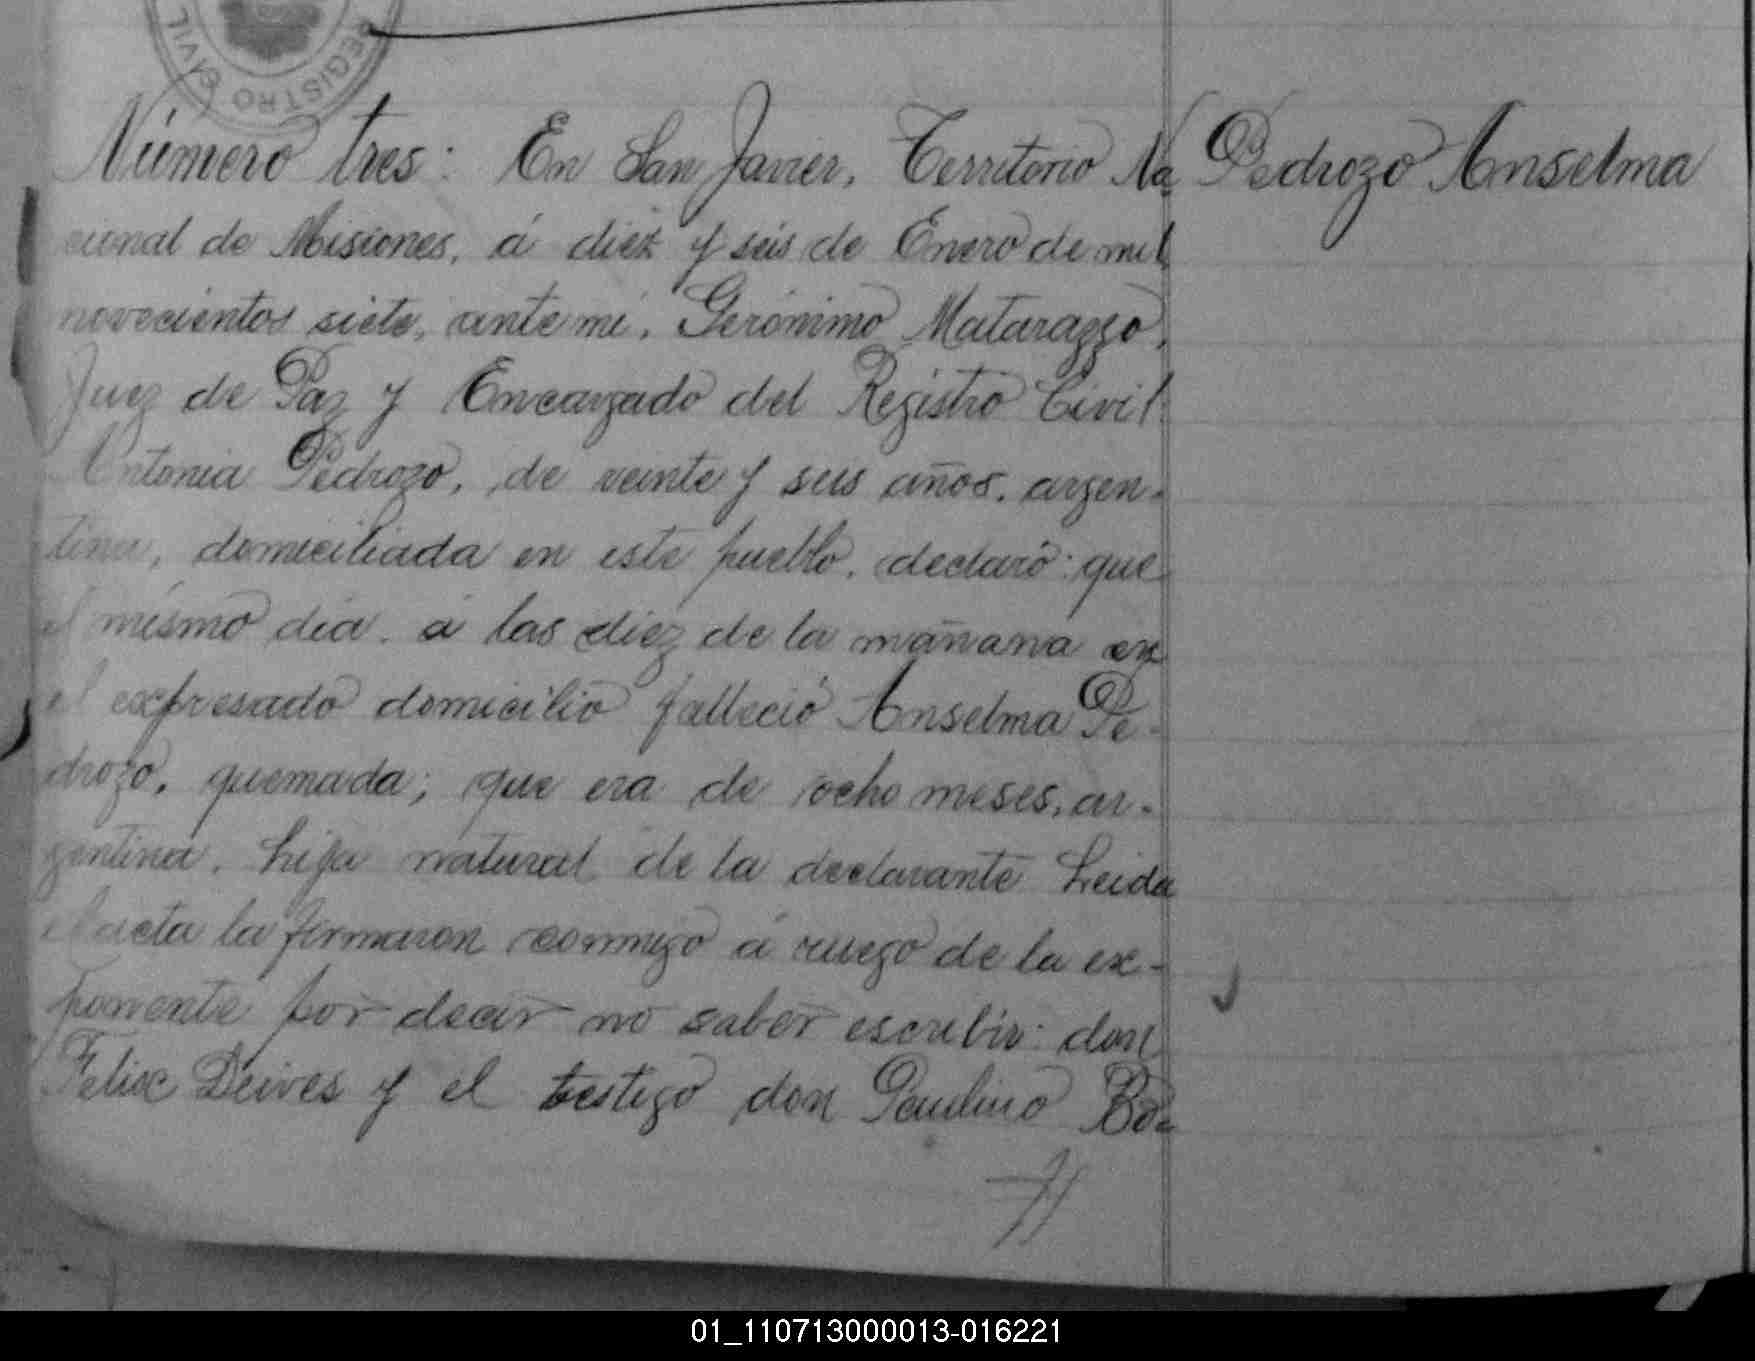 REGISTRO CIVIL
Número tres: En San Javier, Territorio Na
Pedrozo Anselma
cional de Misiones, á diez y seis de Enero de mil
novecientos siete, ante mi, Gerónimo Matarazzo,
Juez de Paz y Encargado del Registro Civil
Antonia Pedrozo, de veinte y seis años, argen-
tina, domiciliada en este pueblo, declaró: que
el mismo dia á las diez de la mañana en
el expresado domicilio falleció Anselma Pe-
drozo, quemada; que era de ocho meses, ar-
gentina, hija natural de la declarante Leida
el acta la firmaron conmigo á ruego de la ex-
ponente por decir no saber escribir: don
Felix Deives y el testigo don Paulino Bo-
01_110713000013-016221